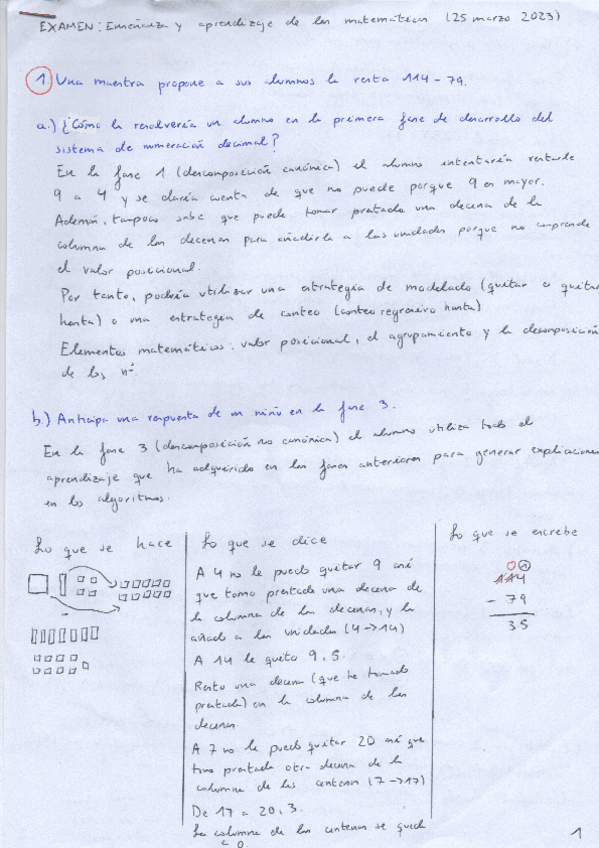 EXAMEN: Enseñanza y aprendizaje de las matemáticas (25 marzo 2023)
1. Una maestra propone a sus alumnos la resta 114 - 79.
a.) ¿Cómo la resolvería un alumno en la primera fase de desarrollo del
sistema de numeración decimal?
En la fase 1 (descomposición canónica) el alumno intentaría restarle
9 a 4 y se daría cuenta de que no puede porque 9 es mayor.
Además, tampoco sabe que puede tomar prestado una decena de la
columna de las decenas para añadirla a las unidades porque no comprende
el valor posicional.
Por tanto, podría utilizar una estrategia de modelado (quitar o quitar
hasta) o una estrategia de conteo (conteo regresivo hasta)
Elementos matemáticos: valor posicional, el agrupamiento y la descomposición
de los nº.
b.) Anticipa una respuesta de un niño en la fase 3.
En la fase 3 (descomposición no canónica) el alumno utiliza todo el
aprendizaje que ha adquirido en las fases anteriores para generar explicaciones
en los algoritmos.
Lo que se hace
Lo que se dice
A 4 no le puedo quitar 9 así
que tomo prestado una decena de
la columna de las decenas, y la
añado a las unidades (4→14)
A 14 le quito 9, 5.
Resto una decena (que he tomado
prestada) en la columna de las
decenas
A 7 no le puedo quitar 20 así que
tomo prestada otra decena de la
columna de las centenas (7→17)
De 17 a 20, 3.
La columna de las centenas se queda
a 0.
Lo que se escribe
0 1
114
- 79
35
1